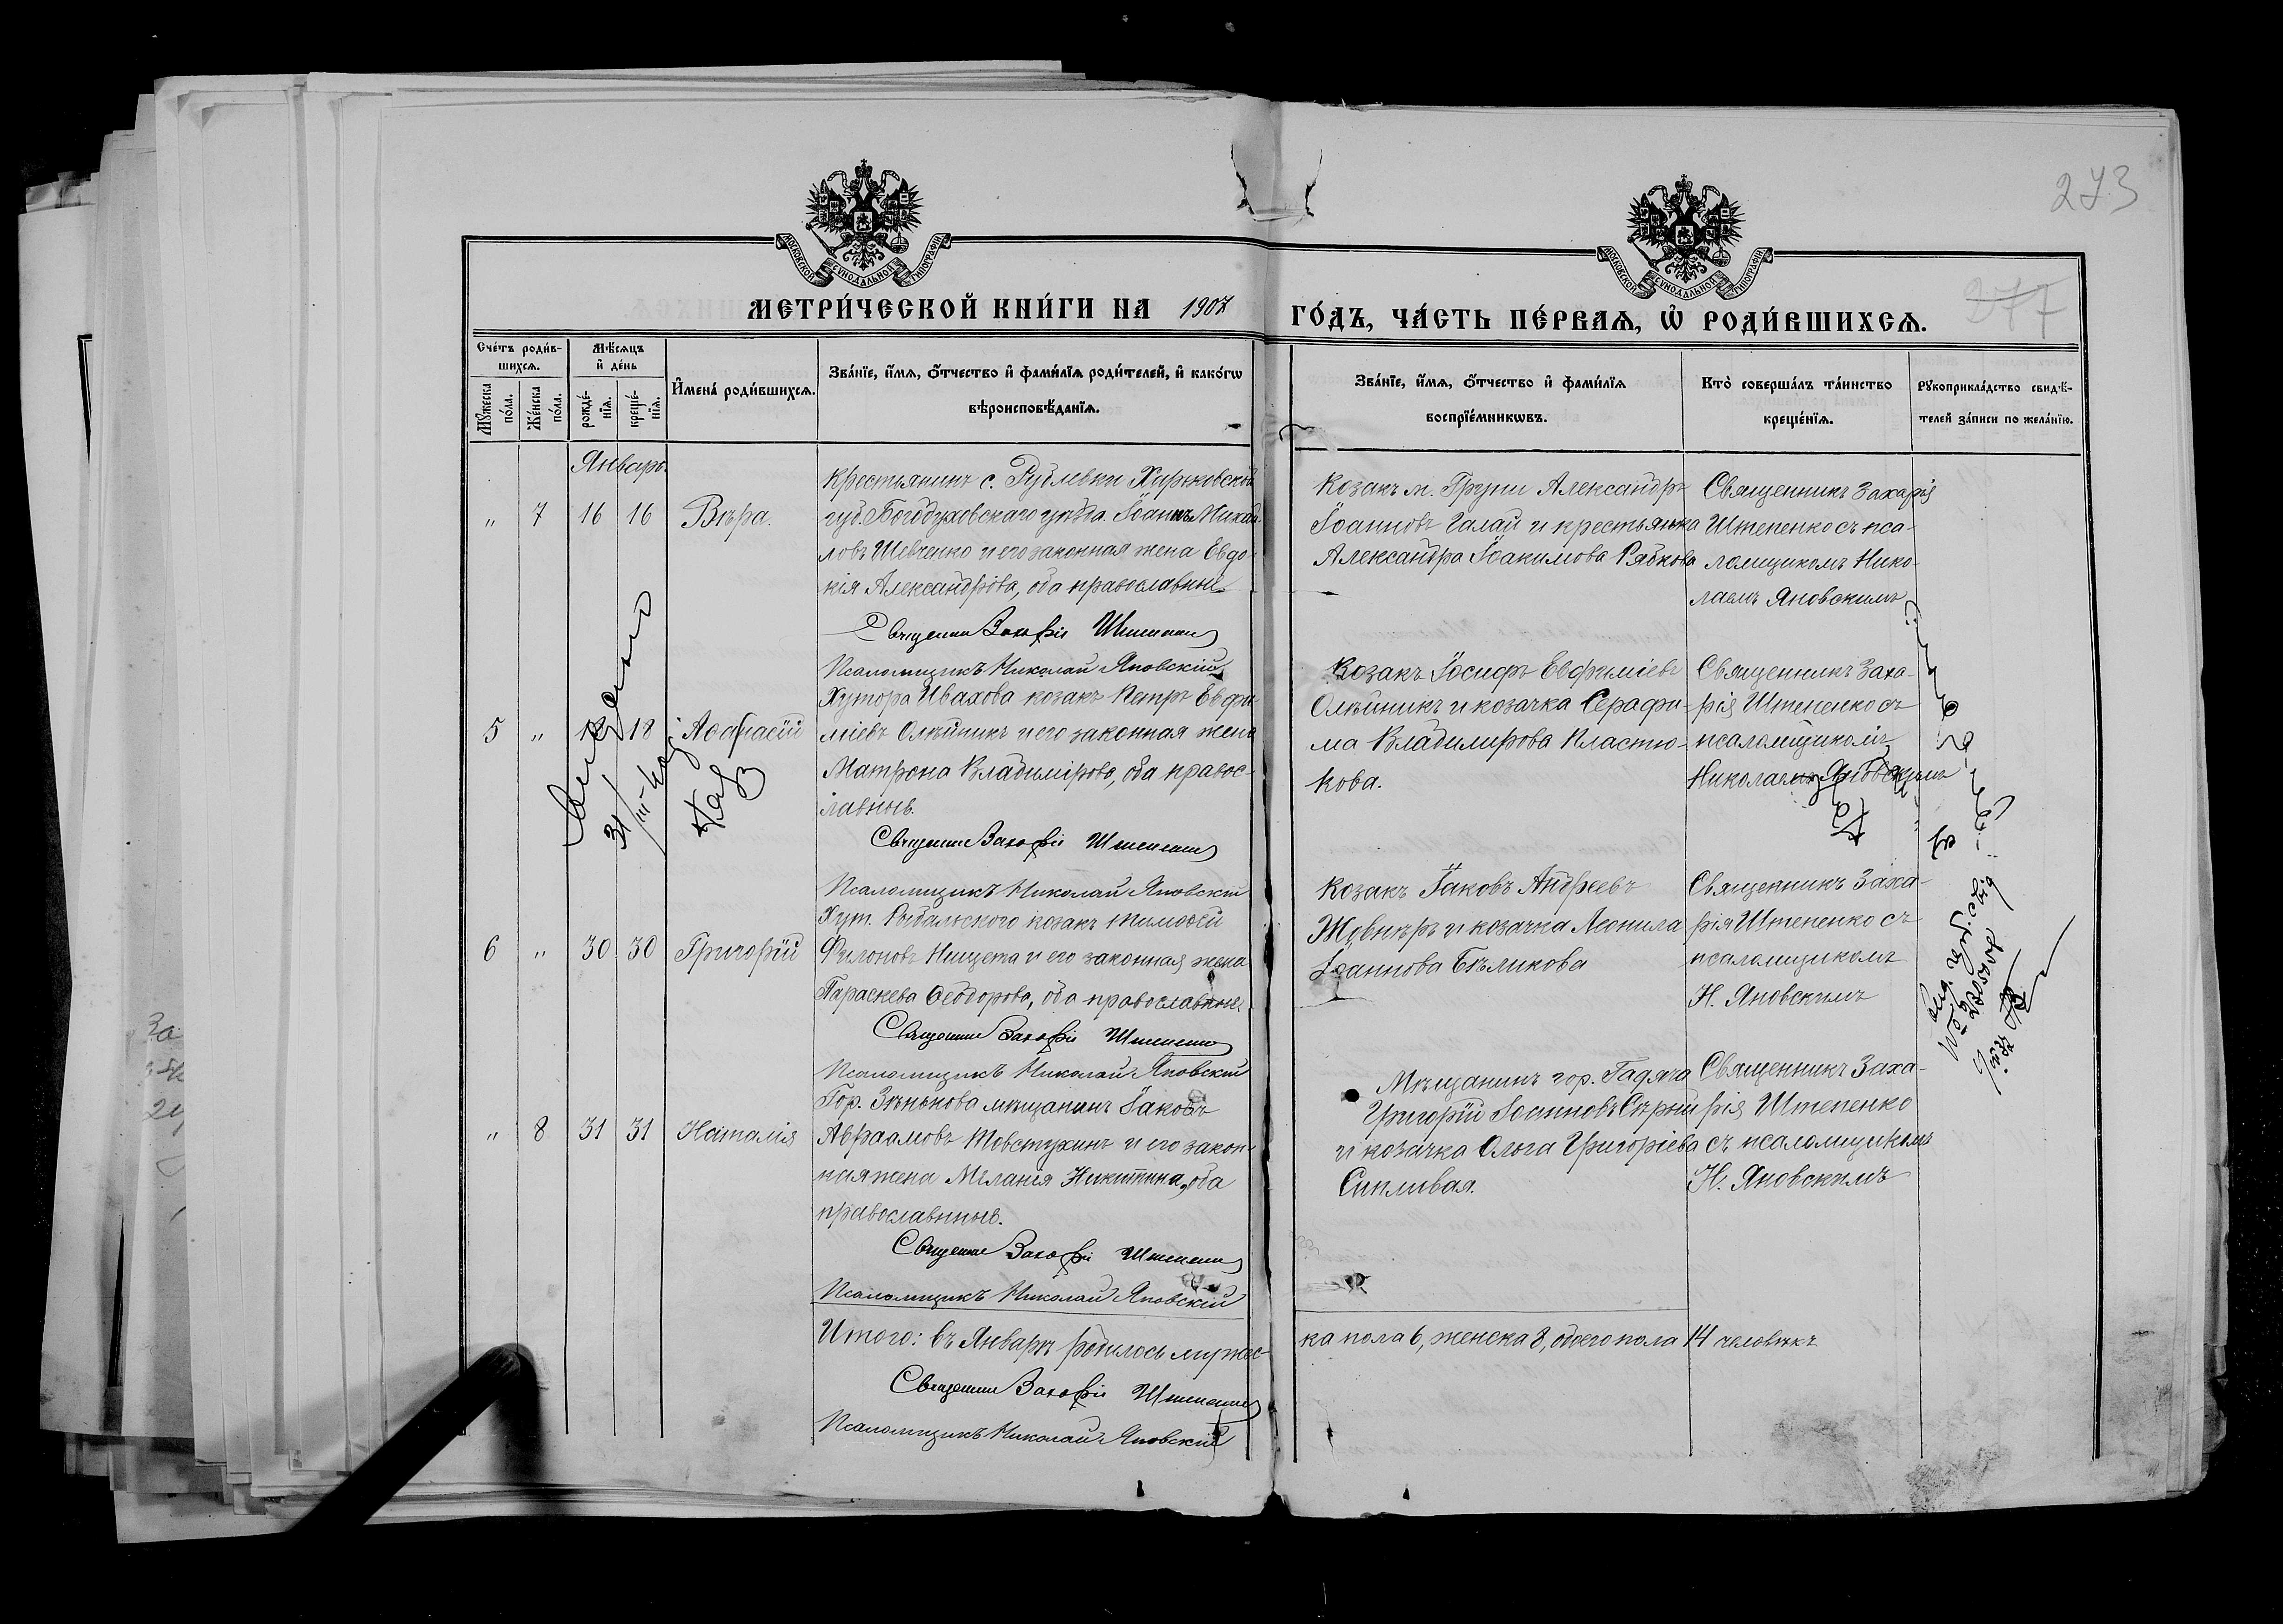 273
277
МОСКОВСКОЙ СѴНОДАЛЬНОЙ ТИПОГРАФІИ
МОСКОВСКОЙ СѴНОДАЛЬНОЙ ТИПОГРАФІИ
МЕТРИ́ЧЕСКОЙ КНИ́ГИ НА 1907 ГО́ДЪ, ЧА́СТЬ ПЕ́РВАѦ, Ѡ҆ РОДИ́ВШИХСѦ.
Сче́тъ роди́в-
шихсѧ.
Мꙋжеска по́ла.
Же́нска по́ла.
Мѣ́сѧцъ
и҆ де́нь
рожде́-
нїѧ.
креще́-
нїѧ.
И҆мена̀ роди́вшихсѧ.
Зва́нїе, и҆́мѧ, ѻ҆́тчество и҆ фами́лїѧ роди́телей, и҆ како́гѡ
вѣроисповѣ́данїѧ.
Зва́нїе, и҆́мѧ, ѻ҆́тчество и҆ фами́лїѧ
воспрїе́мникѡвъ.
Кто̀ соверша́лъ та́инство
креще́нїѧ.
Рꙋкоприкла́дство свидѣ́-
телей за́писи по жела́нїю.
Январь.
" 7 16 16 Вѣра.
Крестьянинъ с. Рублевки Харьковской
губ. Богодуховскаго уѣзда Іоаннъ Михаи
ловъ Шевченко и его законная жена Евдо-
кія Александрова, оба православные
Священникъ Захарій Штепенко
Псаломщикъ Николай Яновскій
Козакъ м. Груни Александръ
Іоанновъ Галай и крестьянка
Александра Іоакимова Рябкова
Священникъ Захарія
Штепенко съ пса-
ломщикомъ Нико-
лаемъ Яновскимъ
5 " 18 Аѳанасій
Хутора Ивахова козакъ Петръ Евфи-
міевъ Олѣйникъ и его законная жена
Матрона Владимірова, оба правос-
лавные.
Священникъ Захарій Штепенко
Псаломщикъ Николай Яновскій
Козакъ Іосифъ Евфиміевъ
Олѣйникъ и козачка Серафи-
ма Владимирова Пластю-
кова.
Священникъ Заха-
рія Штепенко съ
псаломщикомъ
Николаемъ Яновскимъ
6 " 30 30 Григорій
Хут. Рыбальского козакъ Тимоѳей
Филоновъ Нищета и его законная жена
Параскева Ѳеодорова, оба православные.
Священникъ Захарій Штепенко
Псаломщикъ Николай Яновскій
Козакъ Іаковъ Андреевъ
Жовниръ и козачка Леонила
Іоаннова Бѣликова
Священникъ Заха-
рія Штепенко съ
псаломщикомъ
Н. Яновскимъ
" 8 31 31 Наталія
Гор. Зѣнькова мѣщанинъ Іаковъ
Авраамовъ Товстухинъ и его закон-
ная жена Меланія Никитина, оба
православные.
Священникъ Захарій Штепенко
Псаломщикъ Николай Яновскій
Мѣщанинъ гор. Гадяча
Григорій Іоанновъ Сѣрый
и козачка Ольга Григоріева
Сипливая.
Священникъ Заха-
рія Штепенко
съ псаломщикомъ
Н. Яновскимъ
Итого: въ Январѣ родилось мужес-
ка пола 6, женска 8, обоего пола 14 человѣкъ
Священникъ Захарій Штепенко
Псаломщикъ Николай Яновскій